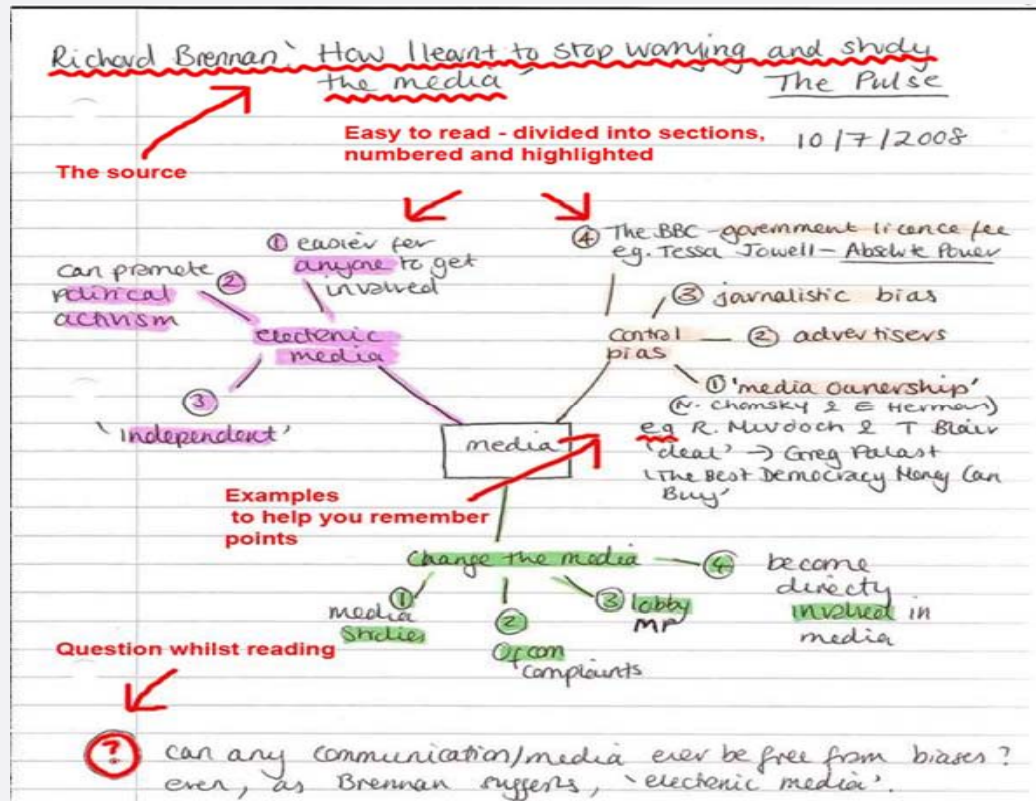 Richard Brennan 'How I learnt to stop worrying and study
the media'
The Pulse
10/7/2008
The source
Easy to read - divided into sections,
numbered and highlighted
① easier for
anyone to get
involved
can promote ②
political
activism
electronic
media
③
'independent'
④ The BBC - government licence fee
eg. Tessa Jowell - Absolute Power
③ journalistic bias
control
bias
② advertisers
① 'media ownership'
(N. Chomsky & E Herman)
eg R. Murdoch & T Blair
'deal' → Greg Palast
'The Best Democracy Money Can
Buy'
media
Examples
to help you remember
points
Change the media
①
media
studies
②
Ofcom
complaints
③ lobby
MP
④ become
directly
involved in
media
Question whilst reading
? can any communication/media ever be free from biases?
even, as Brennan suggests, 'electronic media'.